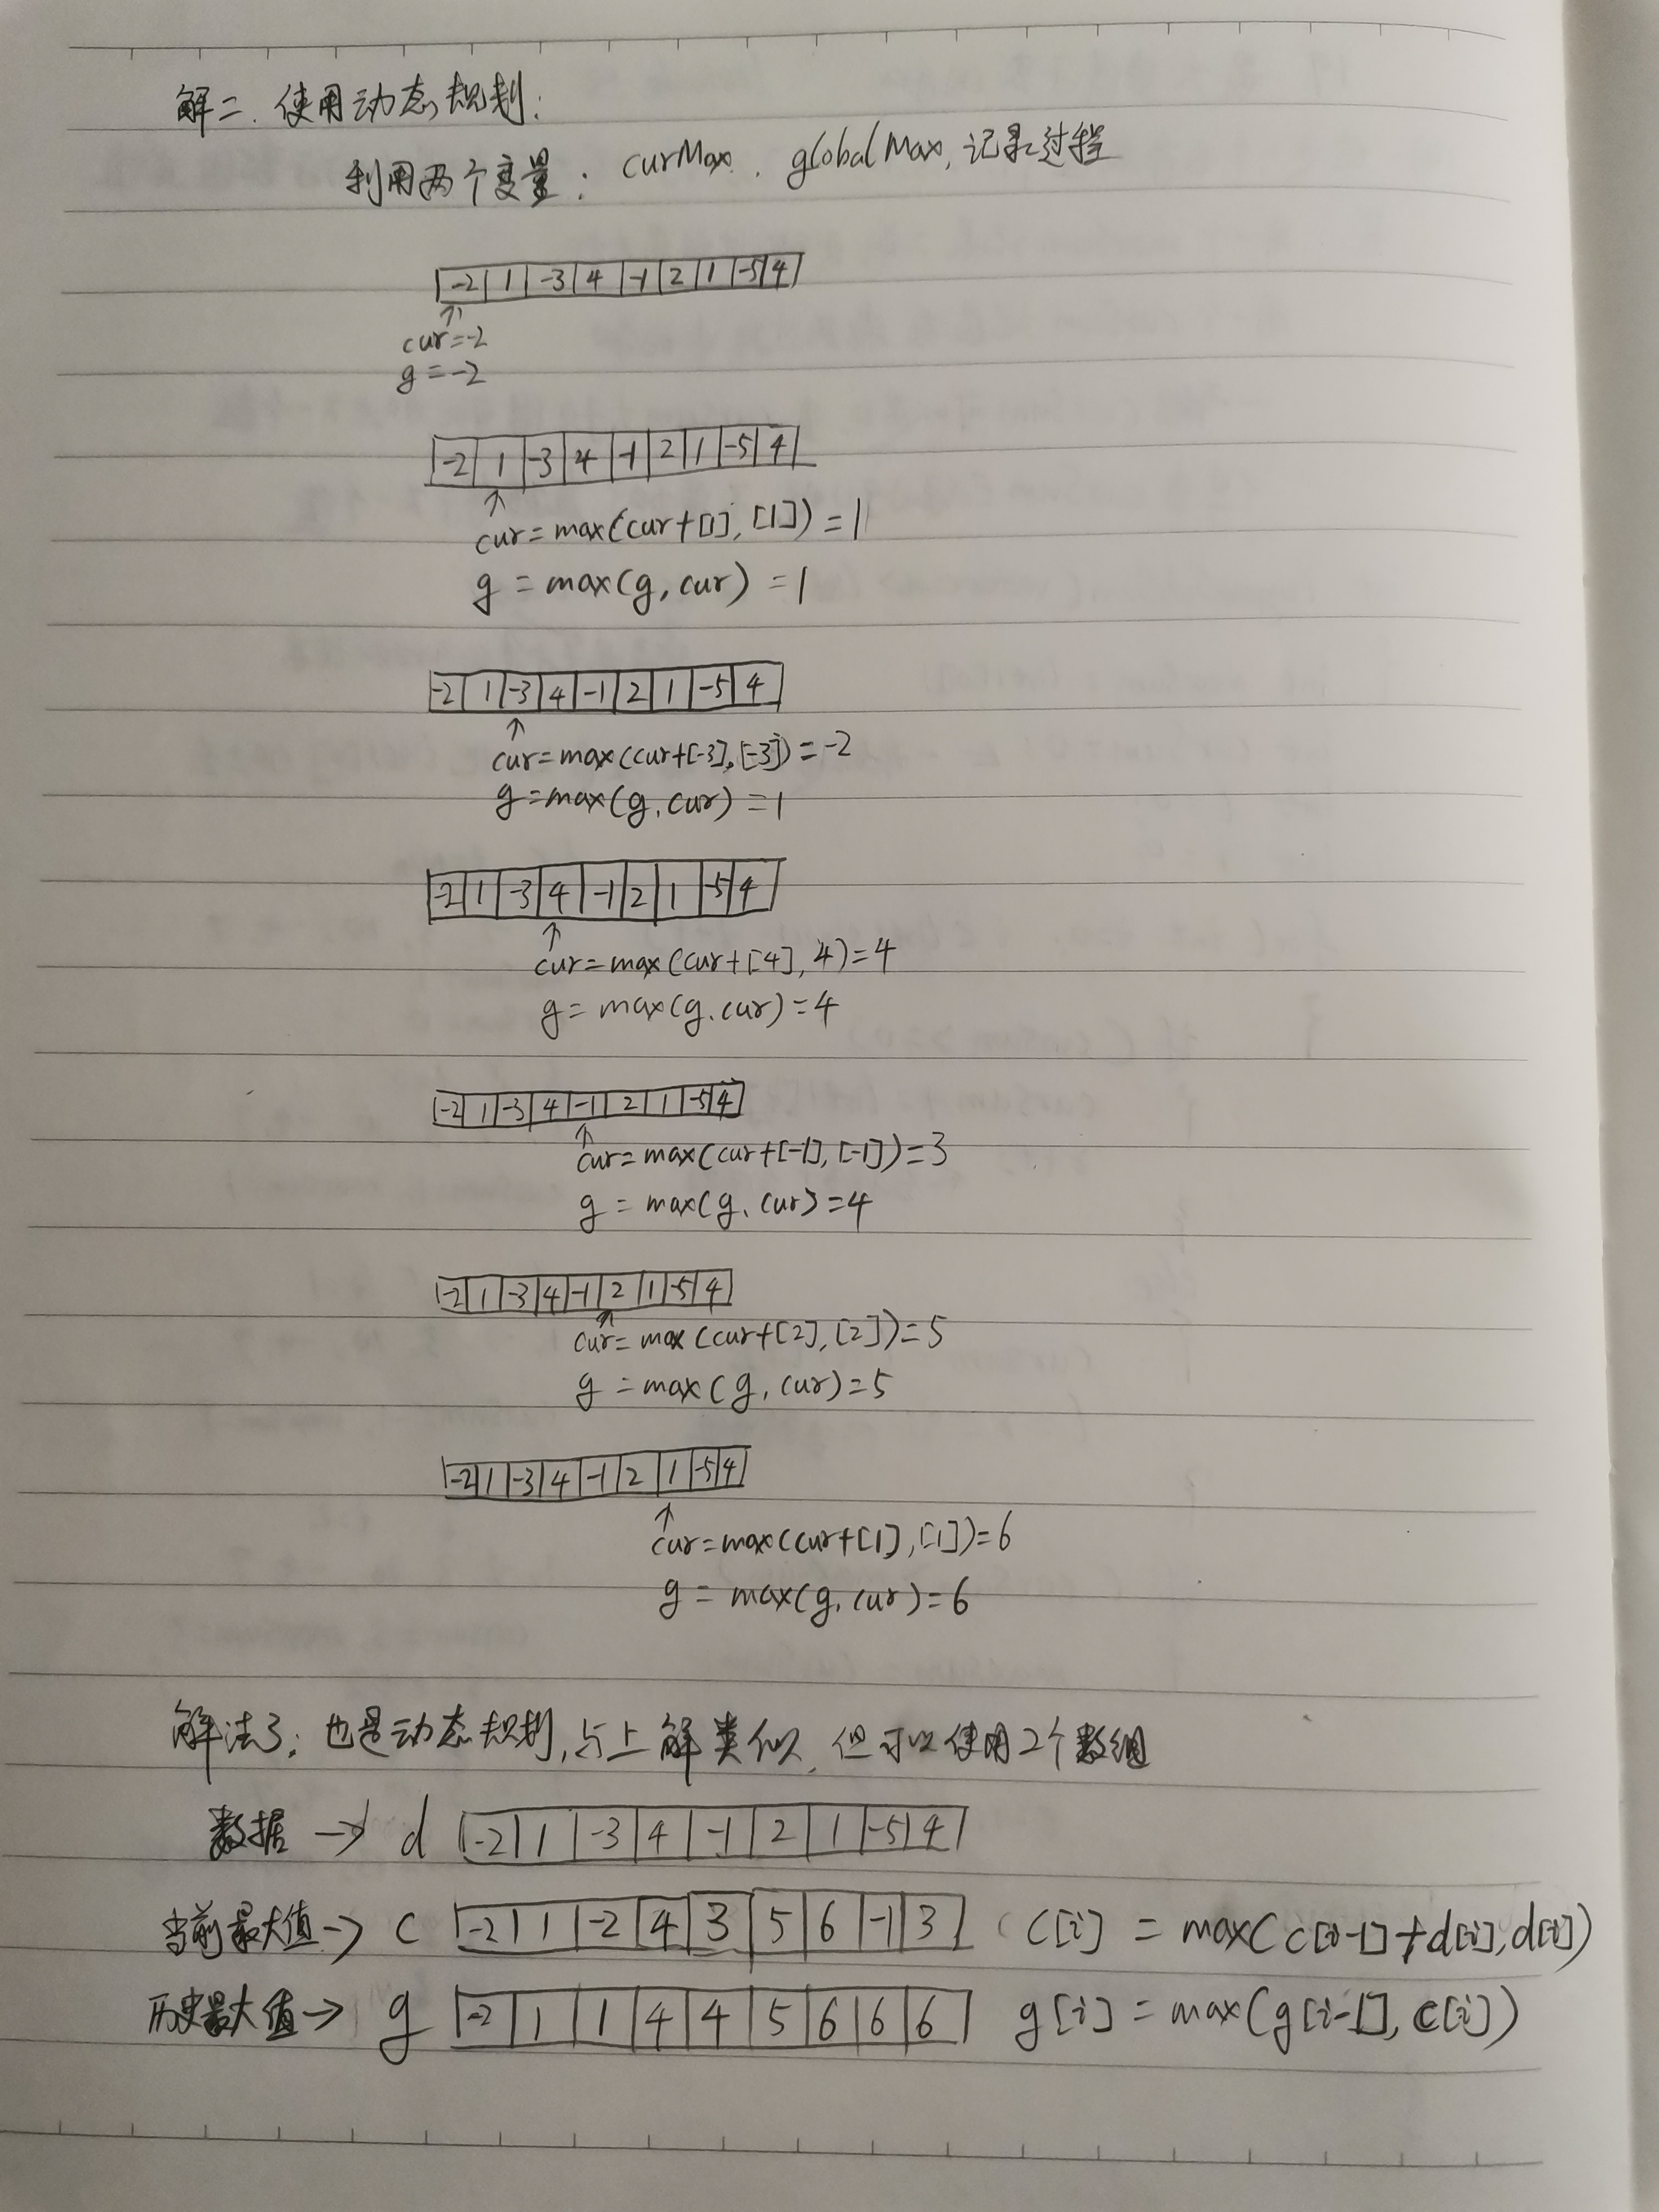 解二. 使用动态规划:
利用两个变量: curMax. globalMax, 记录过程
-2 1 -3 4 -1 2 1 -5 4
↑
cur=-2
g=-2
-2 1 -3 4 -1 2 1 -5 4
↑
cur=max(cur+[1], [1])=1
g=max(g, cur)=1
-2 1 -3 4 -1 2 1 -5 4
↑
cur=max(cur+[-3], [-3])=-2
g=max(g, cur)=1
-2 1 -3 4 -1 2 1 -5 4
↑
cur=max(cur+[4], 4)=4
g=max(g, cur)=4
-2 1 -3 4 -1 2 1 -5 4
↑
cur=max(cur+[-1], [-1])=3
g=max(g, cur)=4
-2 1 -3 4 -1 2 1 -5 4
↑
cur=max(cur+[2], [2])=5
g=max(g, cur)=5
-2 1 -3 4 -1 2 1 -5 4
↑
cur=max(cur+[1], [1])=6
g=max(g, cur)=6
解法3: 也是动态规划, 与上解类似, 但可以使用2个数组
数据→ d -2 1 -3 4 -1 2 1 -5 4
当前最大值→ c -2 1 -2 4 3 5 6 -1 3 ( c[i] = max(c[i-1]+d[i], d[i])
历史最大值→ g -2 1 1 4 4 5 6 6 6 g[i] = max(g[i-1], c[i])